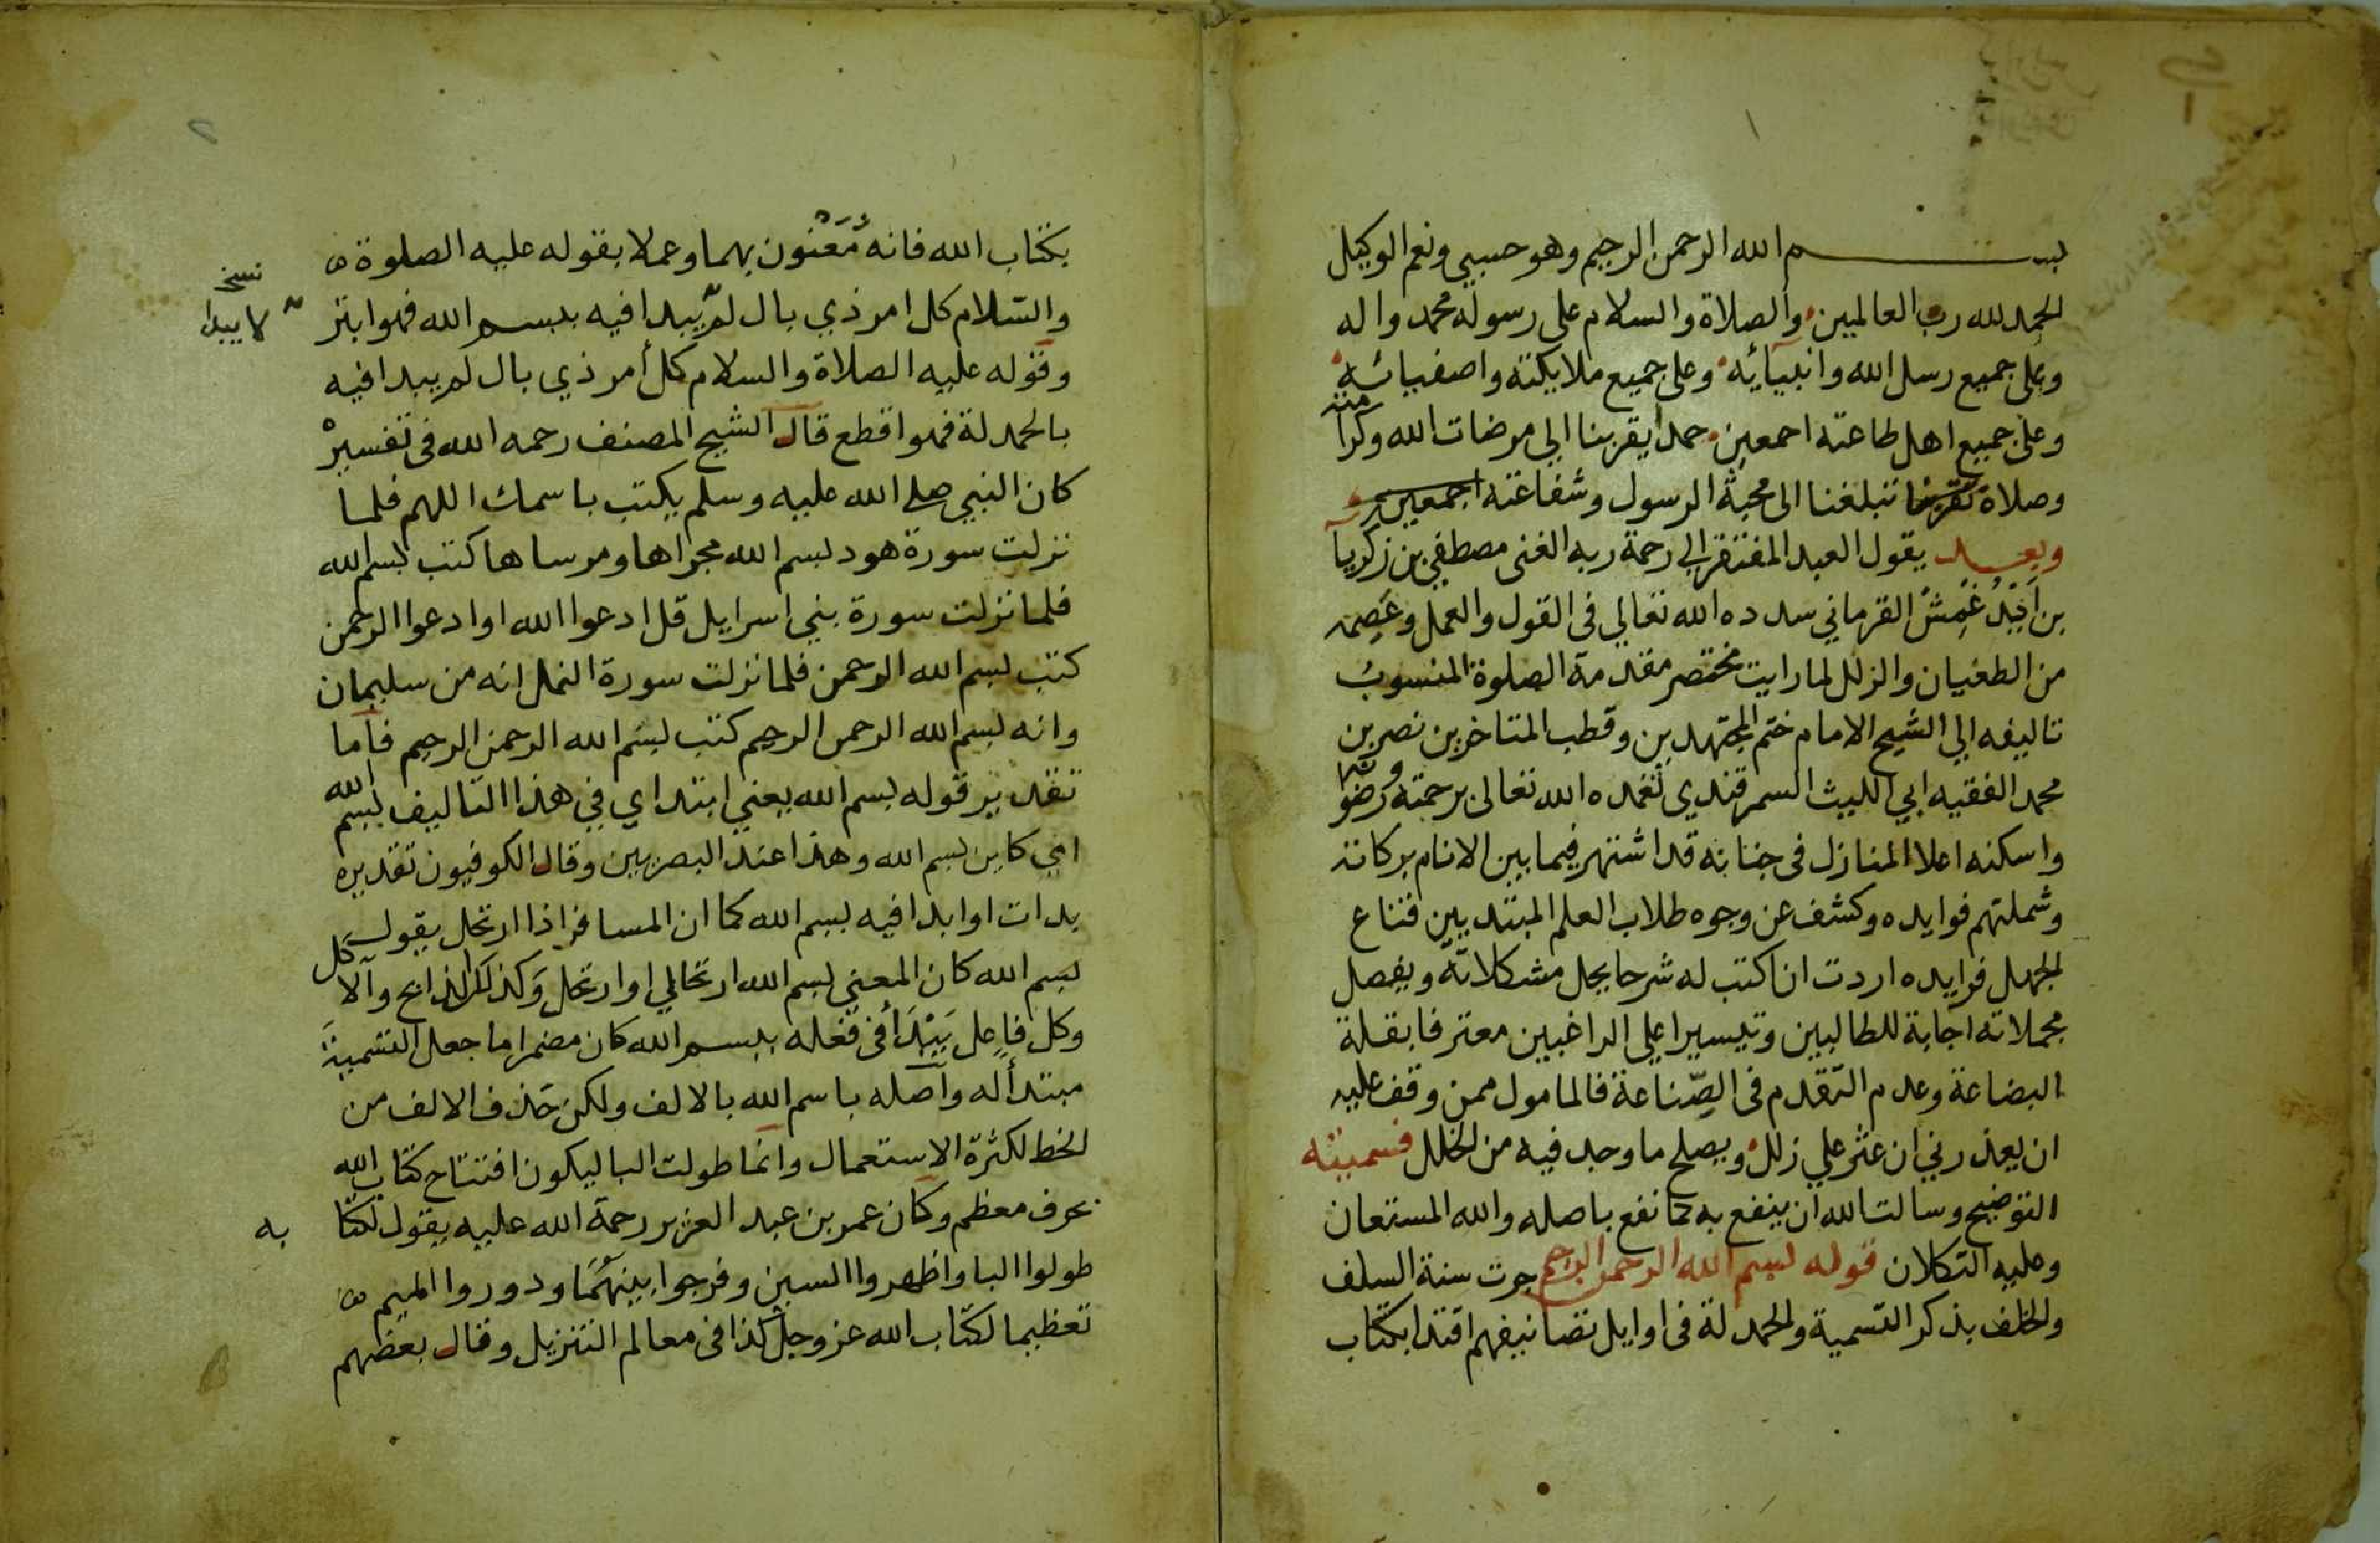 بسم الله الرحمن الرحيم وهو حسبي ونعم الوكيل
الحمد لله رب العالمين والصلاة والسلام على رسوله محمد واله
وعلى جميع رسل الله وانبيائه وعلى جميع ملايكته واصفيائه
وعلى جميع اهل طاعته اجمعين حمدا يقربنا الي مرضات الله وكرامته
وصلاة تبلغنا الى محبة الرسول وشفاعته اجمعين
وبعد يقول العبد المفتقر الي رحمة ربه الغنى مصطفي بن زكريا
بن اَيْدُغْمِشْ القرماني سدده الله تعالي فى القول والعمل وعصمه
من الطغيان والزلل لما رايت مختصر مقدمة الصلوة المنسوب
تاليفه الي الشيخ الامام ختم المجتهدين وقطب المتاخرين نصر بن
محمد الفقيه ابي الليث السمرقندي تغمده الله تعالى برحمته ورضوانه
واسكنه اعلا المنازل فى جنانه قد اشتهر فيما بين الانام بركاته
وشملتهم فوايده وكشف عن وجوه طلاب العلم المبتديين قناع
الجهل فرايده اردت ان اكتب له شرحا يحل مشكلاته ويفصل
مجملاته اجابة للطالبين وتيسيرا علي الراغبين معترفا بقلة
البضاعة وعدم التقدم فى الصِّناعة فالمامول ممن وقف عليه
ان يعذرني ان عثر علي زلل ويصلح ما وجد فيه من الخلل فسميته
التوضيح وسالت الله ان ينفع به كما نفع باصله والله المستعان
وعليه التكلان قوله بسم الله الرحمن الرحيم جرت سنة السلف
والخلف بذكر التسمية والحمدلة فى اوايل تصانيفهم اقتدا بكتاب
بكتاب الله فانه مُعَنْوَن بهما وعملا بقوله عليه الصلوة
والسلام كل امر ذي بال لم يبدا فيه ببسم الله فهو ابتر
نسخ
لا يبدا
وقوله عليه الصلاة والسلام كل أمر ذي بال لم يبدا فيه
بالحمدلة فهو اقطع قال الشيخ المصنف رحمه الله فى تفسيره
كان النبي صلى الله عليه وسلم يكتب باسمك اللهم فلما
نزلت سورة هود بسم الله مجراها ومرساها كتب بسم الله
فلما نزلت سورة بني اسرايل قل ادعوا الله او ادعوا الرحمن
كتب بسم الله الرحمن فلما نزلت سورة النمل انه من سليمان
وانه بسم الله الرحمن الرحيم كتب بسم الله الرحمن الرحيم فاما
تقدير قوله بسم الله يعني ابتداي في هذا التاليف بسم الله
اي كاين بسم الله وهذا عند البصريين وقال الكوفيون تقديره
بدات او ابدا فيه بسم الله كما ان المسافر اذا ارتحل يقول
بسم الله كان المعني بسم الله ارتحالي او ارتحل وكذلك الذابح والاكل
وكل فاعل يَبْدَأ فى فعله ببسم الله كان مضمرا ما جعل التسمية
مبتدأ له واصله باسم الله بالالف ولكن حذف الالف من
الخط لكثرة الاستعمال وانما طولت البا ليكون افتتاح كتاب الله
بحرف معظم وكان عمر بن عبد العزيز رحمة الله عليه يقول لكتابه
طولوا البا واظهروا السين وفرجوا بينهما ودوروا الميم
تعظيما لكتاب الله عز وجل كذا فى معالم التنزيل وقال بعضهم